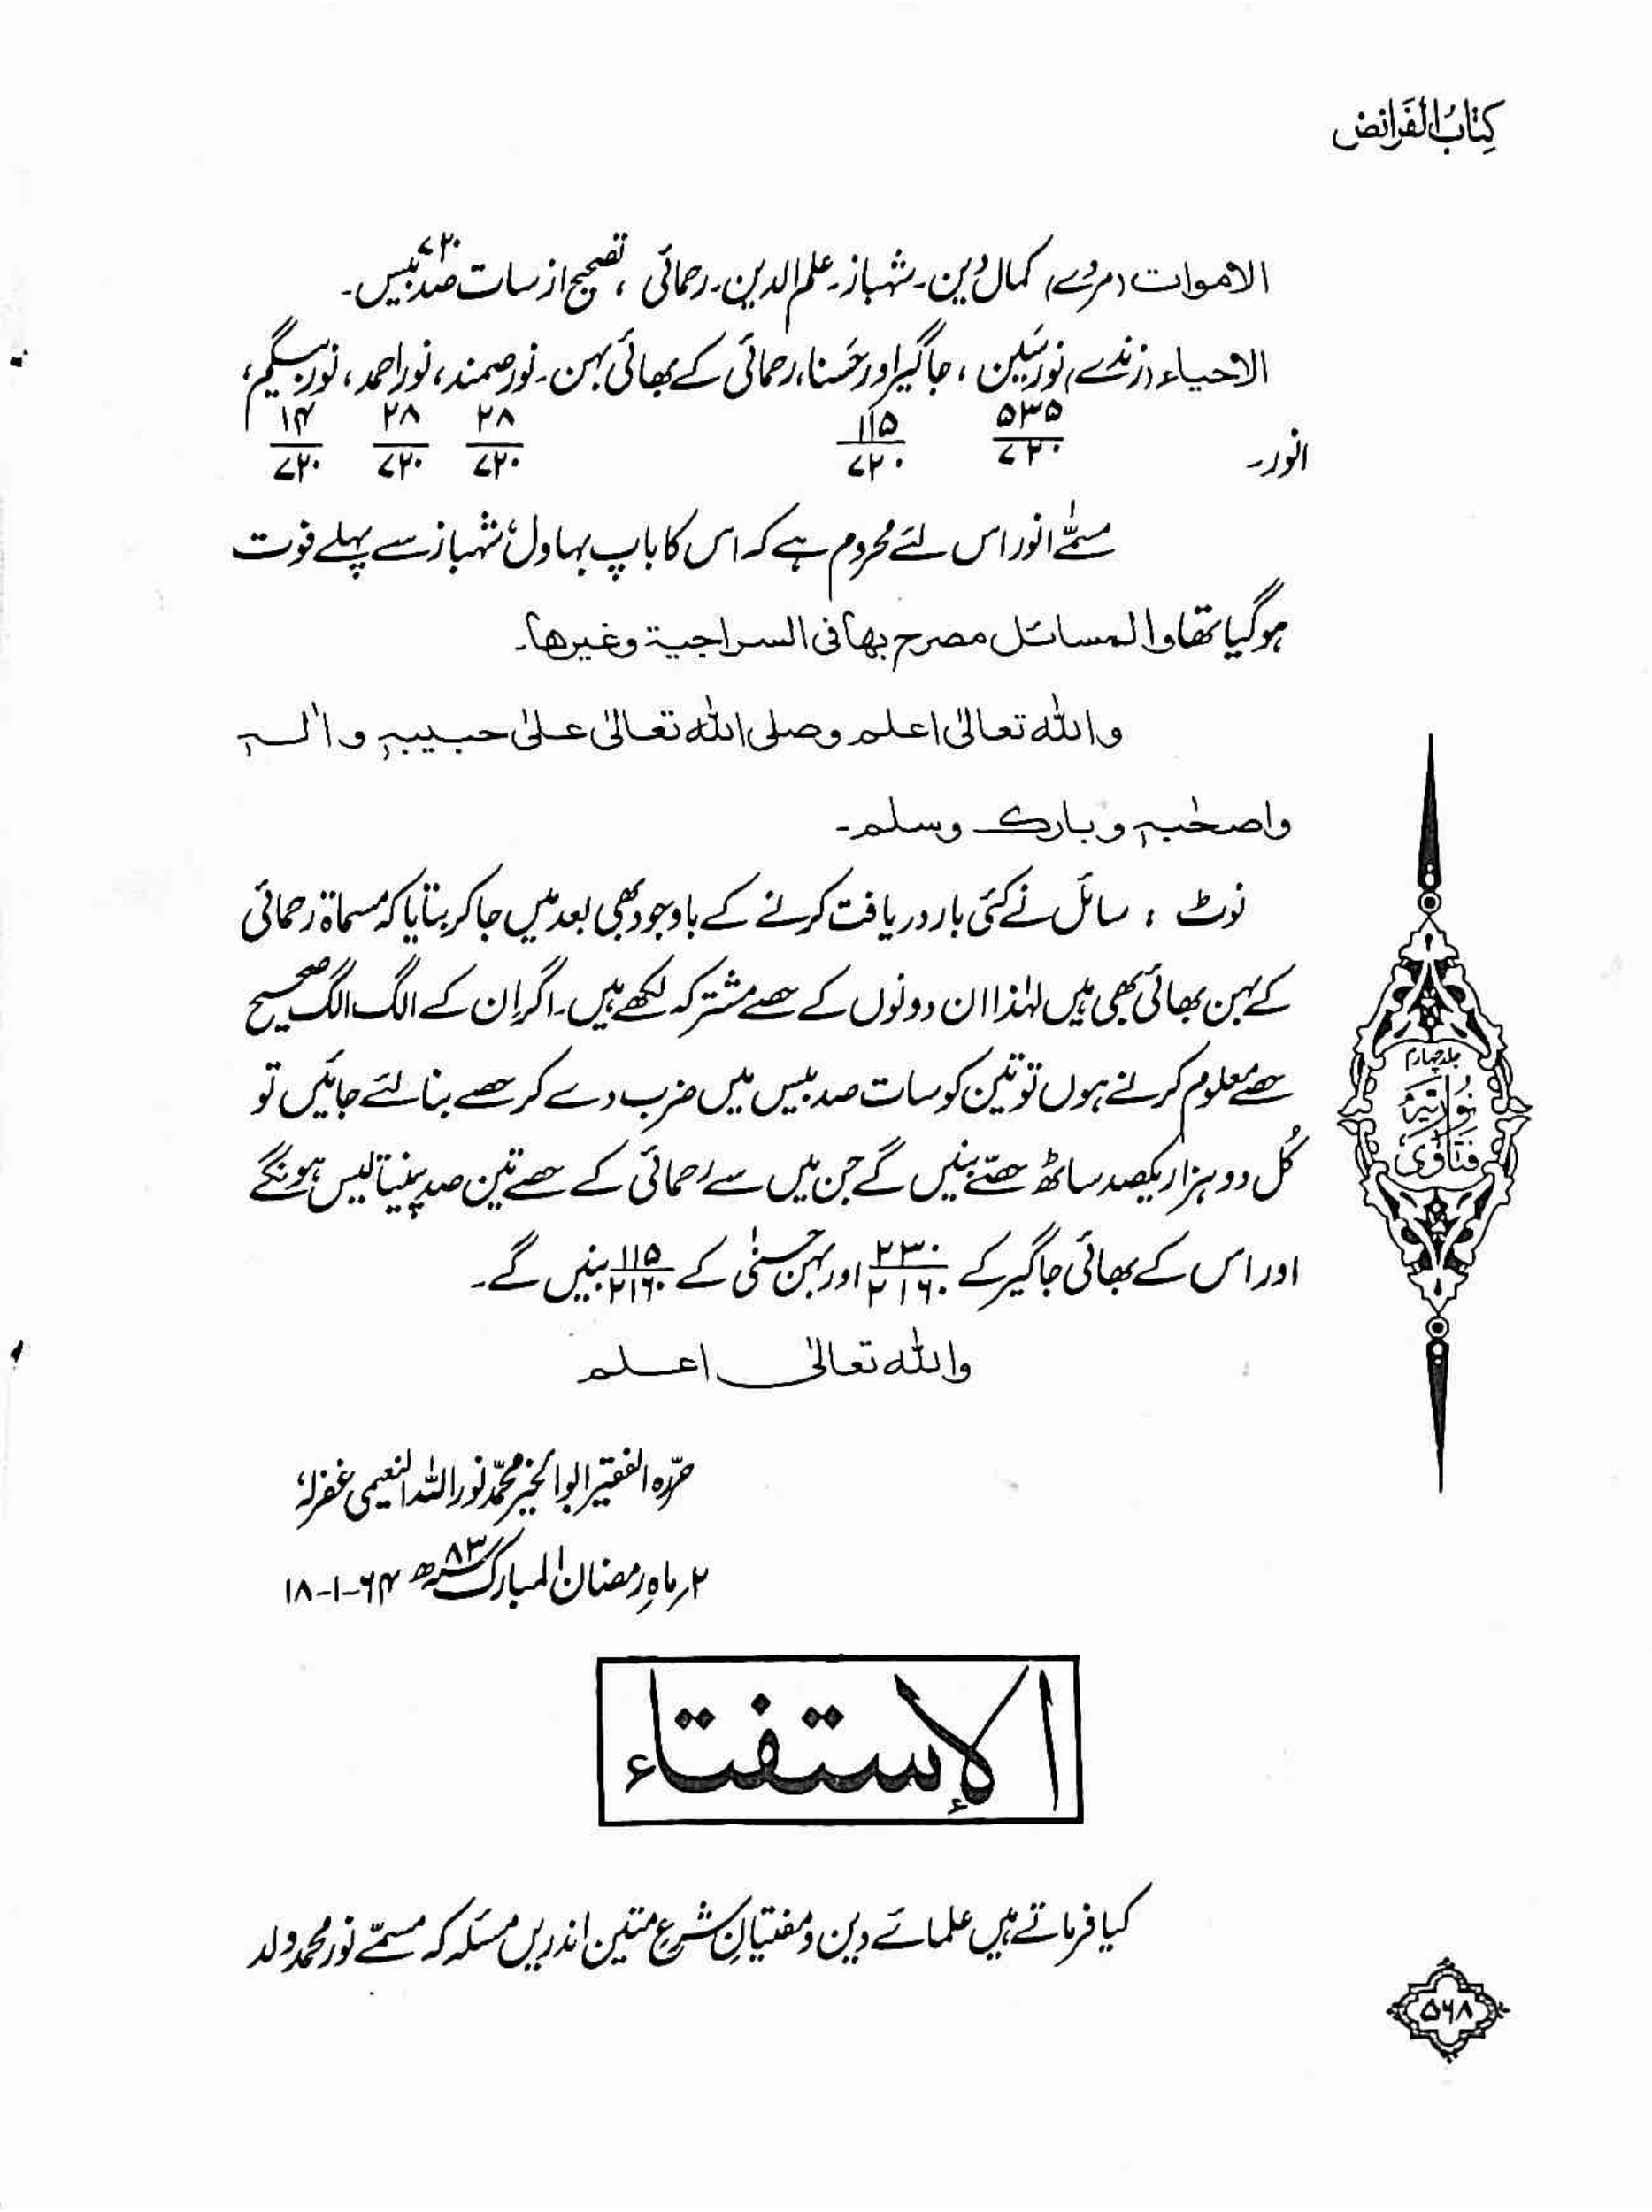 کِتَابُ الْفَرَائض
۷۲۰
الاموات (مردے) کمال دین۔ شہباز۔ علم الدین۔ رحمائی ، تصحیح از سات صد بیس۔
الاحیاء (زندے) نور سَین ، جاگیر اور حَسنا، رحمائی کے بھائی بہن۔ نور صمند، نور احمد، نور بیگم،
انور۔ ۵۳۵/۷۲۰ ۱۱۵/۷۲۰ ۲۸/۷۲۰ ۲۸/۷۲۰ ۱۴/۷۲۰
مسمّٰے انور اس لئے محروم ہے کہ اس کا باپ بہاول، شہباز سے پہلے فوت
ہوگیا تھا والمسائل مصرح بھا فی السراجیۃ وغیرھا۔
واللہ تعالیٰ اعلم وصلی اللہ تعالیٰ علیٰ حبیبہٖ واٰلہٖ
واصحٰبہٖ وبارک وسلم۔
نوٹ : سائل نے کئی بار دریافت کرنے کے باوجود بھی بعد میں جا کر بتایا کہ مسماۃ رحمائی
کے بہن بھائی بھی ہیں لہٰذا ان دونوں کے حصے مشترکہ لکھے ہیں۔ اگر ان کے الگ الگ صحیح
حصے معلوم کرنے ہوں تو تین کو سات صد بیس میں ضرب دے کر حصے بنا لئے جائیں تو
کُل دو ہزار یکصد ساٹھ حصّے بنیں گے جن میں سے رحمائی کے حصے تین صد پینتالیس ہونگے
اور اس کے بھائی جاگیر کے ۲۳۰/۲۱۶۰ اور بہن حسنٰی کے ۱۱۵/۲۱۶۰ بنیں گے۔
واللہ تعالیٰ اعلم
حرّرہ الفقیر ابوالخیر محمّد نور اللہ النعیمی غفرلہٗ
۲ر ماہِ رمضان المبارک ۸۳ھ ۶۴-۱-۱۸
جلد چہارم
نُورِیَّہ
فَتَاوٰی
الاِستفتاء
کیا فرماتے ہیں علمائے دین و مفتیانِ شرع متین اندریں مسئلہ کہ مسمّٰے نور محمد ولد
۵۶۸